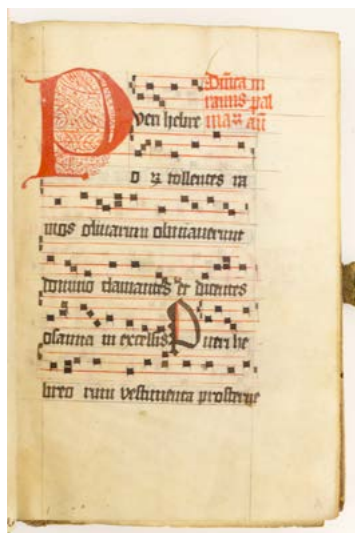 Dñica in
ramis pal
maꝝ añ
Pueri hebre
o ꝝ tollentes ra
mos oliuarum obuiauerunt
domino clamantes et dicentes
osanna in excelsis Pueri he
breo rum vestimenta prosterne